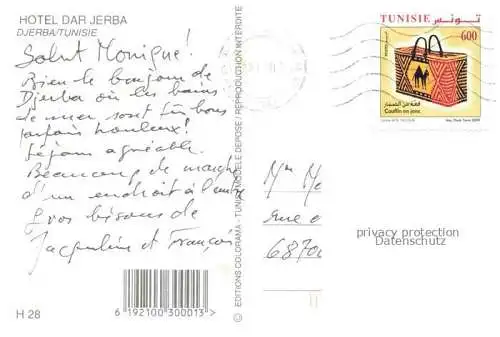 HOTEL DAR JERBA
DJERBA/TUNISIE
Salut Monique!
Bien le bonjour de
Djerba où les bains
de mer sont très bons
parfois houleux!
Séjour agréable.
Beaucoup de marche
d'un endroit à l'autre
Gros bisous de
Jacqueline et François
H 28
6 192100 300013 >
© EDITIONS COLORAMA - TUNIS MODELE DEPOSE / REPRODUCTION INTERDITE
TUNISIE تونس
600
قفة من الصمار
Couffin en jonc
Mme
Rue
6870
privacy protection
Datenschutz